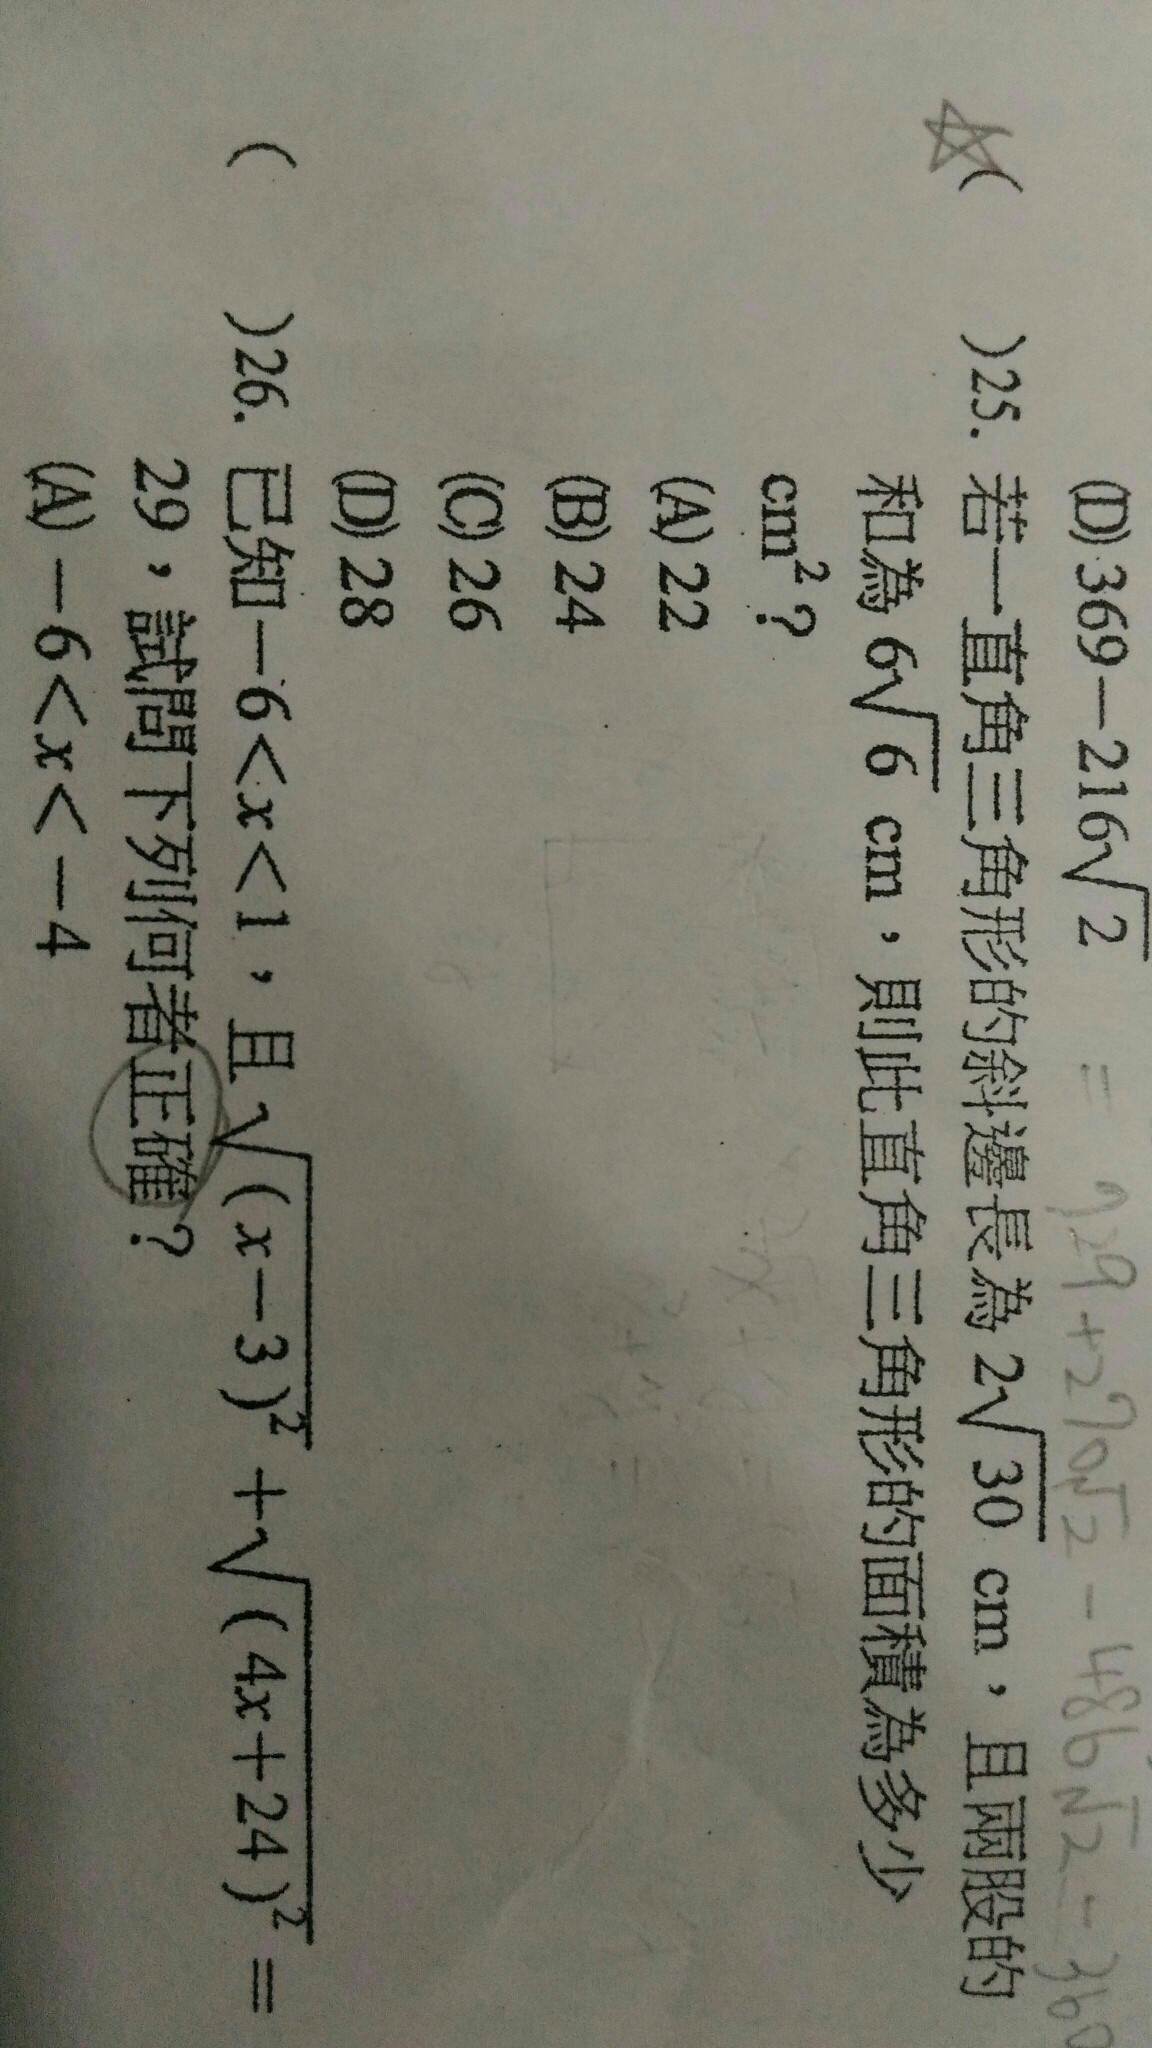 (D) 369－216√2 = 729+270√2 - 486√2 - 360
( )25. 若一直角三角形的斜邊長為 2√30 cm，且兩股的
和為 6√6 cm，則此直角三角形的面積為多少
cm²？
(A) 22
(B) 24
(C) 26
(D) 28
( )26. 已知－6<x<1，且√(x－3)² +√(4x+24)² =
29，試問下列何者正確？
(A)－6<x<－4